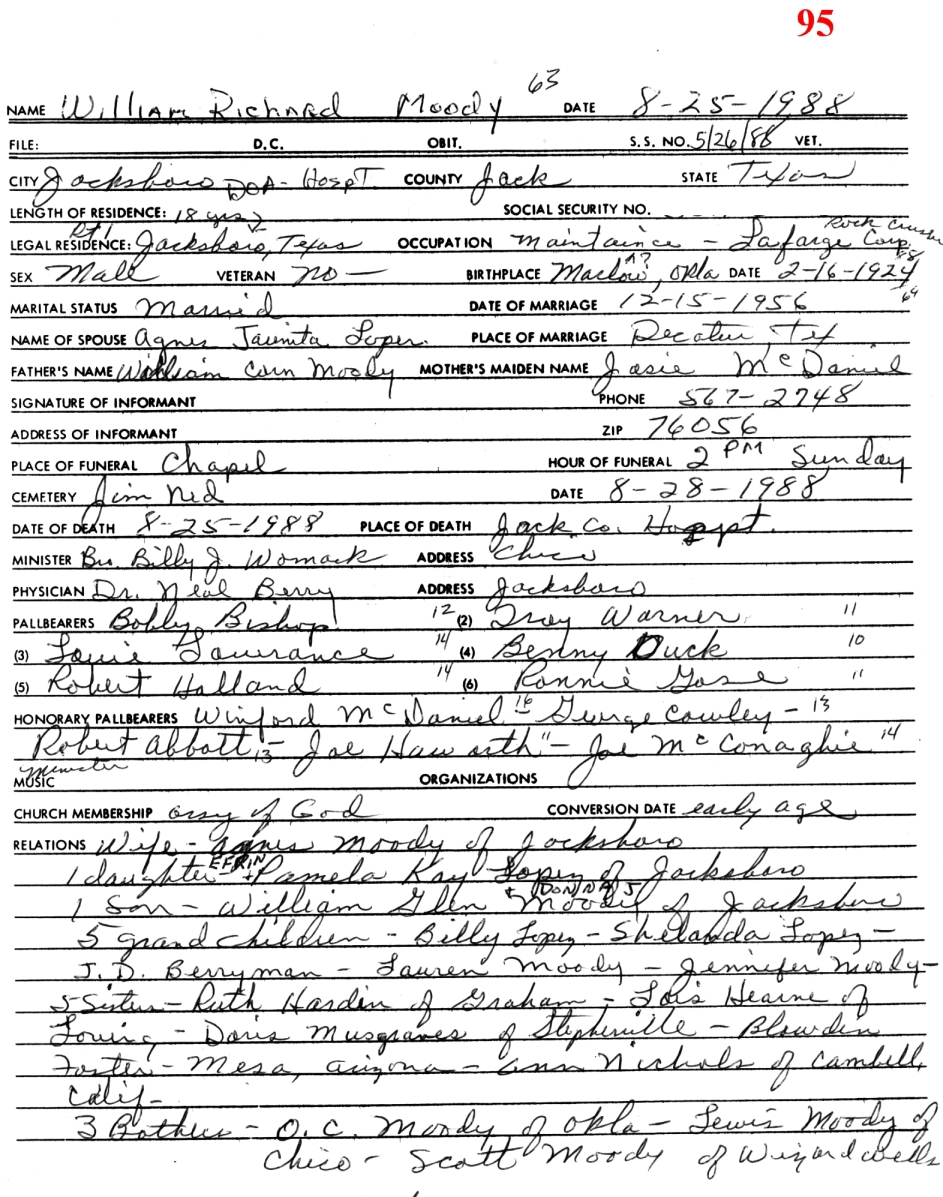 95
63
NAME William Richard Moody DATE 8-25-1988
FILE: D.C. OBIT. S.S. NO. 5/26/88 VET.
CITY Jacksboro DOA-Hospt. COUNTY Jack STATE Texas
LENGTH OF RESIDENCE: 18 yrs SOCIAL SECURITY NO.
Rt 1 Rock Crusher
LEGAL RESIDENCE: Jacksboro, Texas OCCUPATION Maintaince - Lafarge Corp.
SEX Male VETERAN no - BIRTHPLACE Marlow, Okla DATE 2-16-1924
MARITAL STATUS Married DATE OF MARRIAGE 12-15-1956
NAME OF SPOUSE Agnes Jaunita Loper. PLACE OF MARRIAGE Decatur, Tex
FATHER'S NAME William Corn Moody MOTHER'S MAIDEN NAME Josie McDaniel
SIGNATURE OF INFORMANT PHONE 567-2748
ADDRESS OF INFORMANT ZIP 76056
PLACE OF FUNERAL Chapel HOUR OF FUNERAL 2 PM Sunday
CEMETERY Jim Ned DATE 8-28-1988
DATE OF DEATH 8-25-1988 PLACE OF DEATH Jack Co. Hospt.
MINISTER Bro. Billy J. Womack ADDRESS Chico
PHYSICIAN Dr. Neal Berry ADDRESS Jacksboro
PALLBEARERS Bobby Bishop 12 (2) Troy Warner 11
(3) Louie Lowrance 14 (4) Benny Duck 10
(5) Robert Holland 14 (6) Ronnie Gose 11
HONORARY PALLBEARERS Winford McDaniel 16 - George Cowley - 13
Robert Abbott 13 - Joe Haworth 11 - Joe McConaghie 14
Minister
MUSIC ORGANIZATIONS
CHURCH MEMBERSHIP assy of God CONVERSION DATE early age
RELATIONS Wife - Agnes Moody of Jacksboro
1 daughter - EFRIN + Pamela Kay Lopez of Jacksboro
1 Son - William Glen + DONNA J Moody of Jacksboro
5 grand children - Billy Lopez - Shelanda Lopez -
J.D. Berryman - Lauren Moody - Jennifer Moody -
5 Sisters - Ruth Hardin of Graham - Lois Hearne of
Loving - Doris Musgraves of Stephenville - Blowden
Foster - Mesa, Arizona - Ann Nichols of Cambell,
Calif -
3 Bothers - O.C. Moody of Okla - Lewis Moody of
Chico - Scott Moody of Wizard Wells